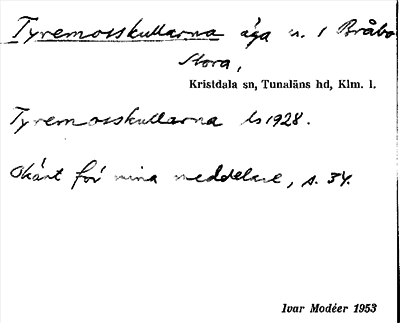 Tyremosskullarna äga n. 1 Bråbo
Stora,
Kristdala sn, Tunaläns hd, Klm. l.
Tyremosskullarna ls 1928.
Okänt för mina meddelare, s. 34.
Ivar Modéer 1953